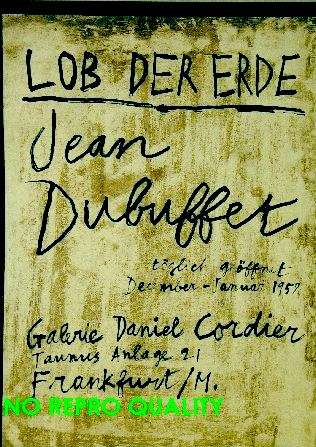 LOB DER ERDE
Jean
Dubuffet
täglich geöffnet
December - Januar 1959
Galerie Daniel Cordier
Taunus Anlage 21
Frankfurt/M.
NO REPRO QUALITY